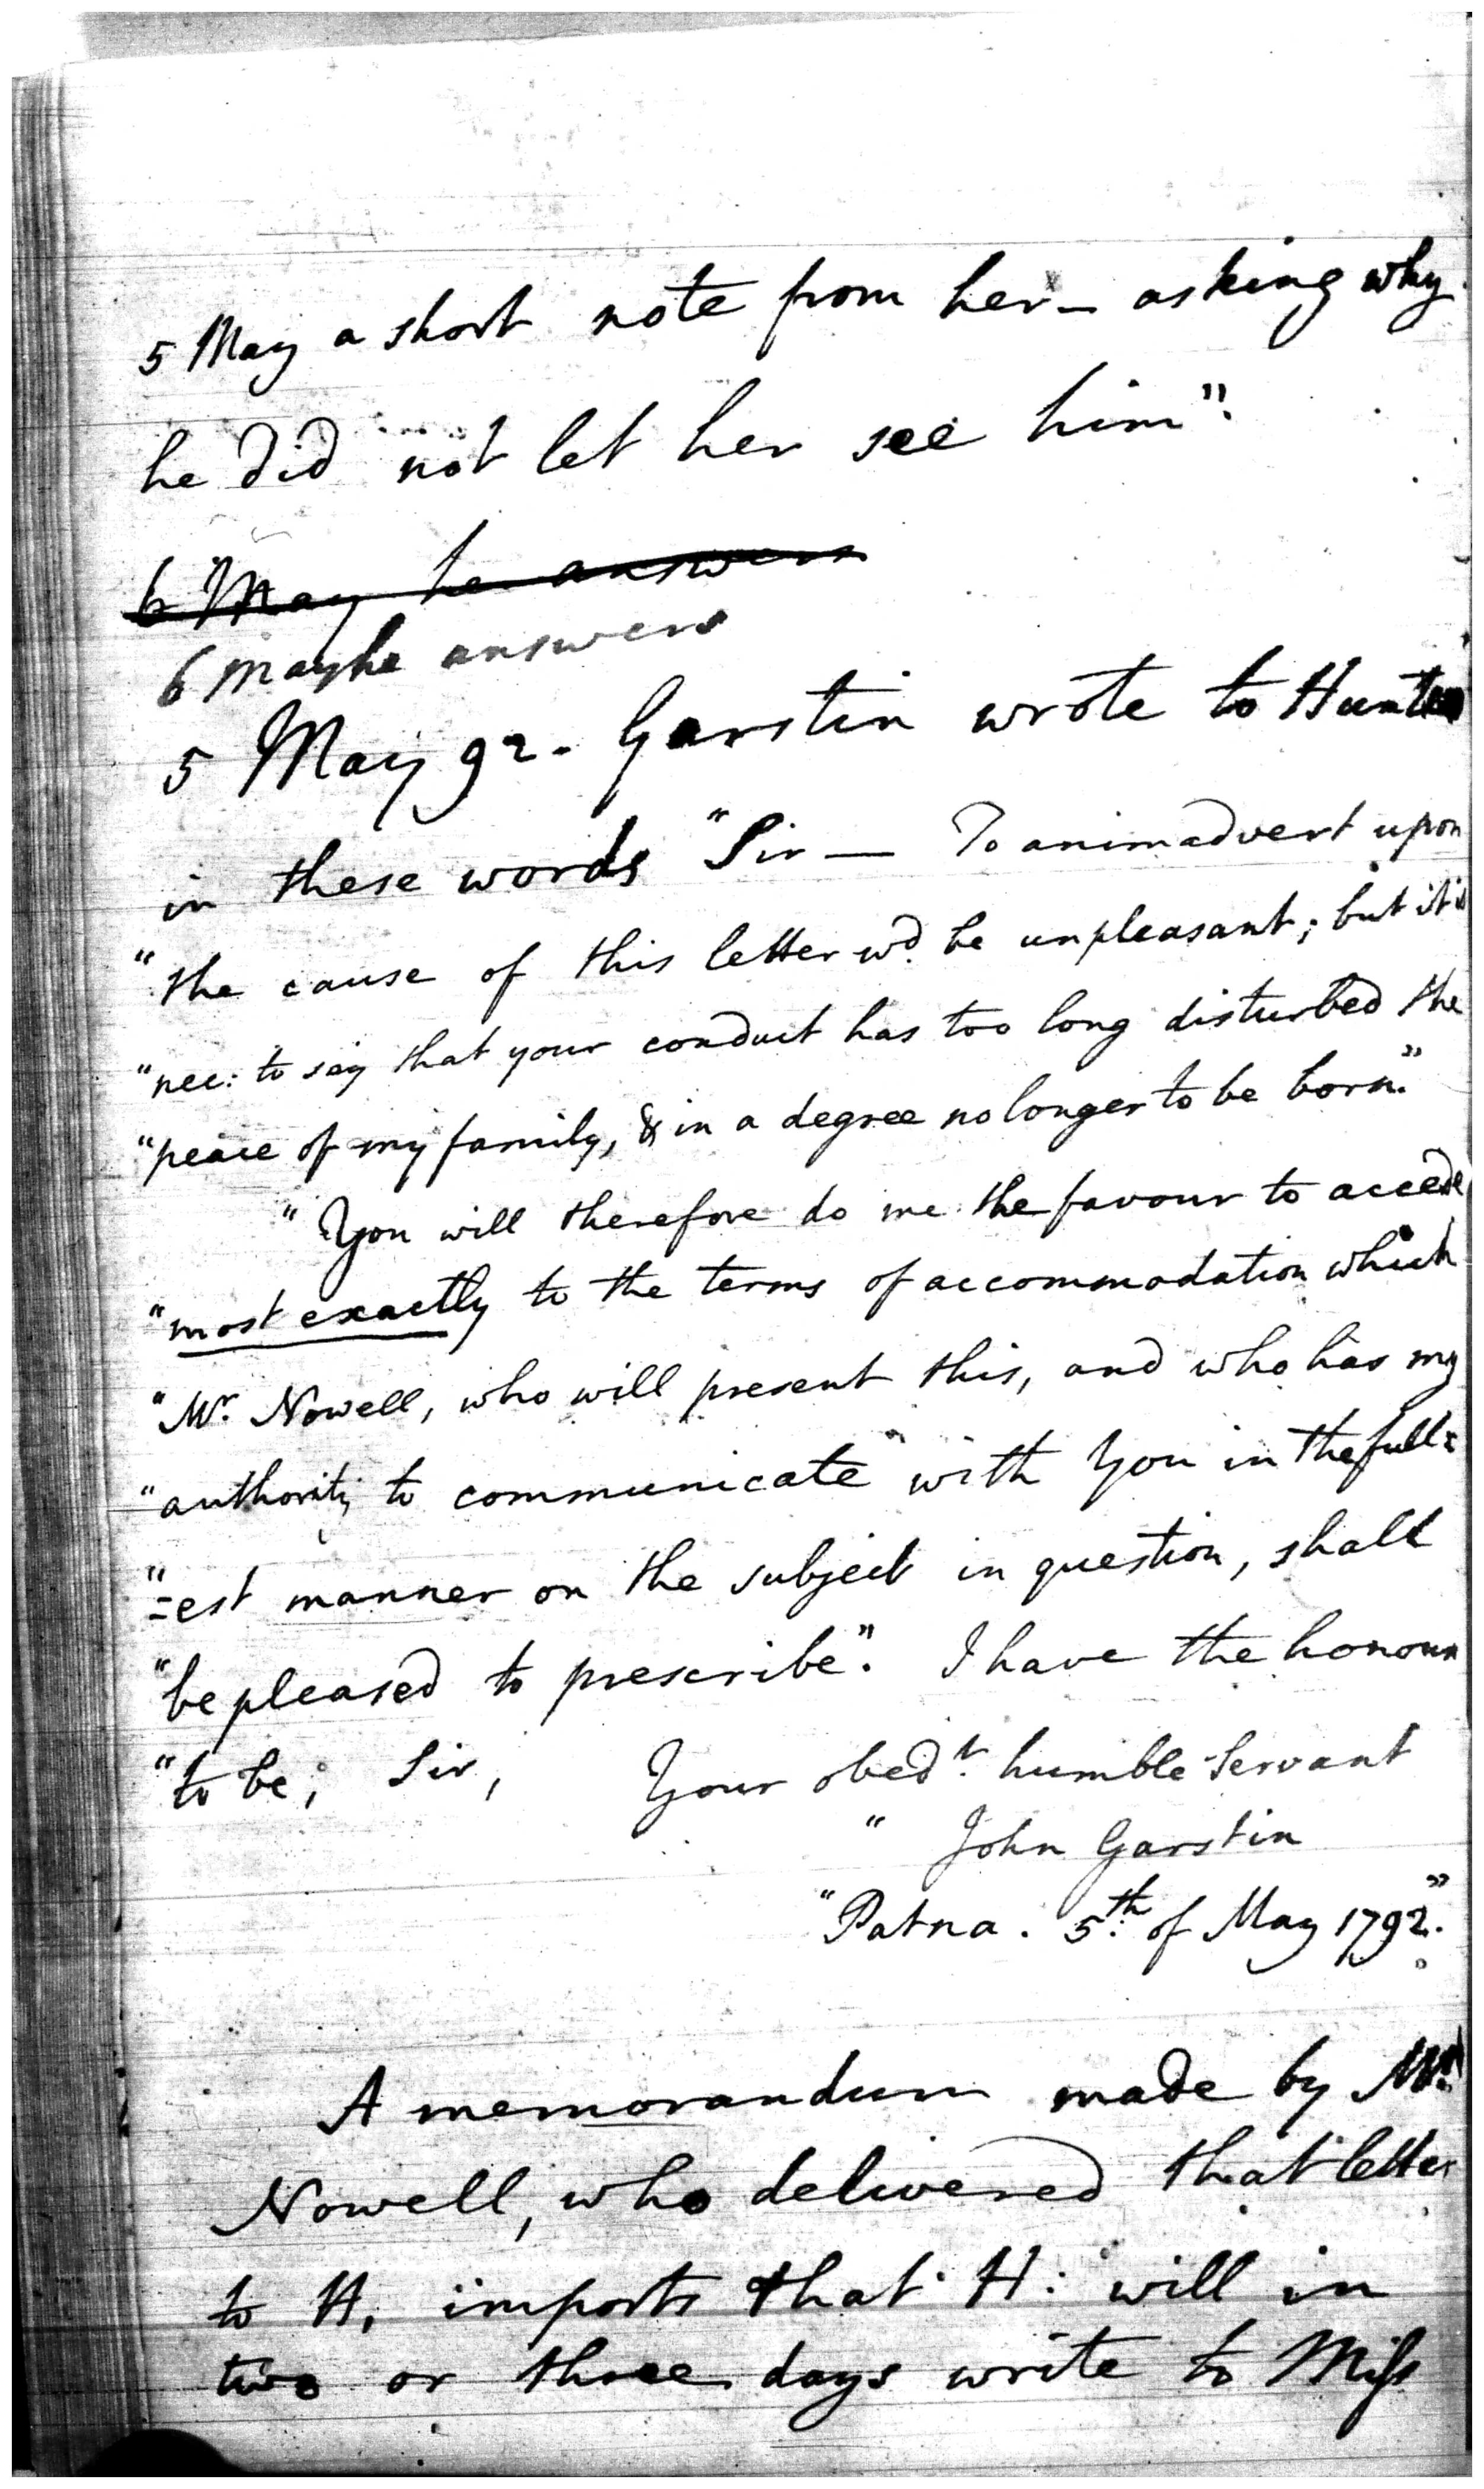 5 May a short note from her - asking why
he did not let her see him".
6 May he answers
6 may he answers
5 May 92 - Garstin wrote to Hunter
in these words "Sir — To animadvert upon
"the cause of this letter wd. be unpleasant; but it is
"nec: to say that your conduct has too long disturbed the
"peace of my family, & in a degree no longer to be born."
"You will therefore do me the favour to accede
"most exactly to the terms of accommodation which
"Mr. Nowell, who will present this, and who has my
"authority to communicate with You in the full=
"=est manner on the subject in question, shall
"be pleased to prescribe". I have the honour
"to be, Sir, Your obedt. humble Servant
" John Garstin
"Patna. 5th. of May 1792."
A memorandum made by Mr.
Nowell, who delivered that letter
to H, imports that H: will in
two or three days write to Miss